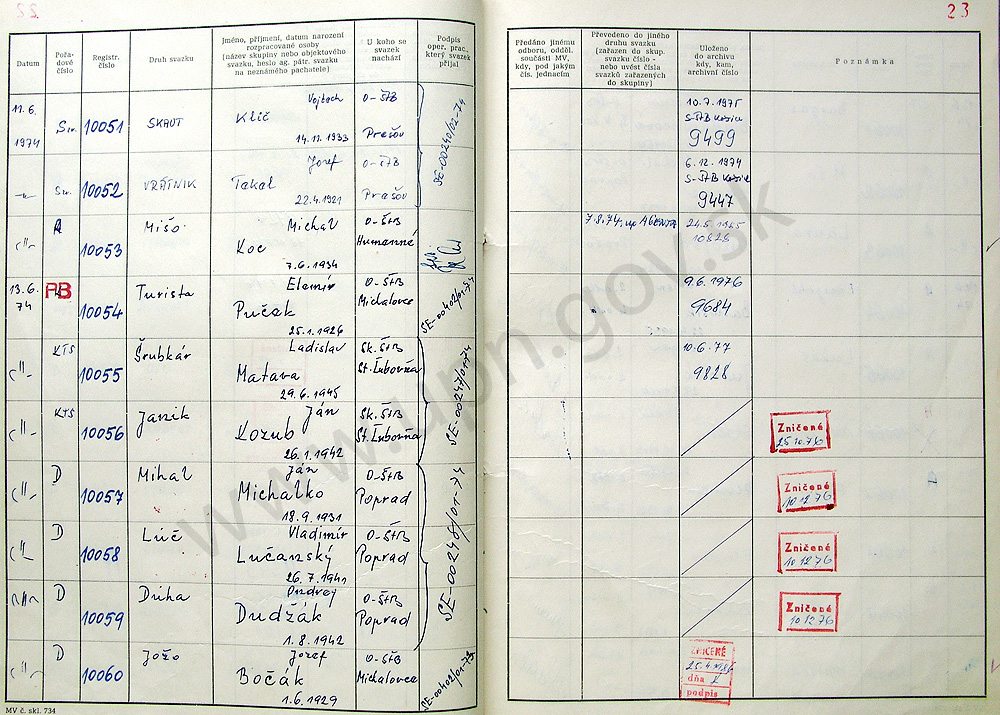 23
Datum
Pořa-
dové
číslo
Registr.
číslo
Druh svazku
Jméno, příjmení, datum narození
rozpracované osoby
(název skupiny nebo objektového
svazku, heslo ag. pátr. svazku
na neznámého pachatele)
U koho se
svazek
nachází
Podpis
oper. prac.,
který svazek
přijal
Předáno jinému
odboru, odděl.
součásti MV,
kdy, pod jakým
čís. jednacím
Převedeno do jiného
druhu svazku
(zařazen do skup.
svazku číslo -
nebo uvést čísla
svazků zařazených
do skupiny)
Uloženo
do archivu
kdy, kam,
archivní číslo
Poznámka
11.6.
1974
10051
SKAUT
Vojtech
Klič
14.11.1933
O-ŠtB
Prešov
SE-00240/02-74
10.7.1975
S-ŠtB Košice
9499
10052
VRÁTNIK
Jozef
Takal
22.4.1921
O-ŠtB
Prešov
6.12.1974
S-ŠtB Košice
9447
A
10053
Mišo
Michal
Koc
7.6.1934
O-ŠtB
Humenné
7.8.74 AGENTA
10828
13.6.
74
PB
10054
Turista
Elemír
Pučak
25.1.1926
O-ŠtB
Michalovce
SE-00402/01-74
9.6.1976
9684
KTS
10055
Šrubkár
Ladislav
Matava
29.6.1945
Sk. ŠtB
St. Ľubovňa
SE-00247/01-74
10.6.77
9828
KTS
10056
Janík
Ján
Kozub
26.1.1942
Sk. ŠtB
St. Ľubovňa
Zničené
25.10.76
D
10057
Mihal
Ján
Michalko
18.9.1931
O-ŠtB
Poprad
SE-00248/01-74
Zničené
10.12.76
D
10058
Lúč
Vladimír
Lučanský
26.7.1941
O-ŠtB
Poprad
Zničené
10.12.76
D
10059
Druha
Ondrej
Dudžák
1.8.1942
O-ŠtB
Poprad
Zničené
10.12.76
D
10060
Jožo
Jozef
Bočák
1.6.1929
O-ŠtB
Michalovce
SE-00402/01-74
ZNIČENÉ
dňa
podpis
MV č. skl. 734
www.upn.gov.sk